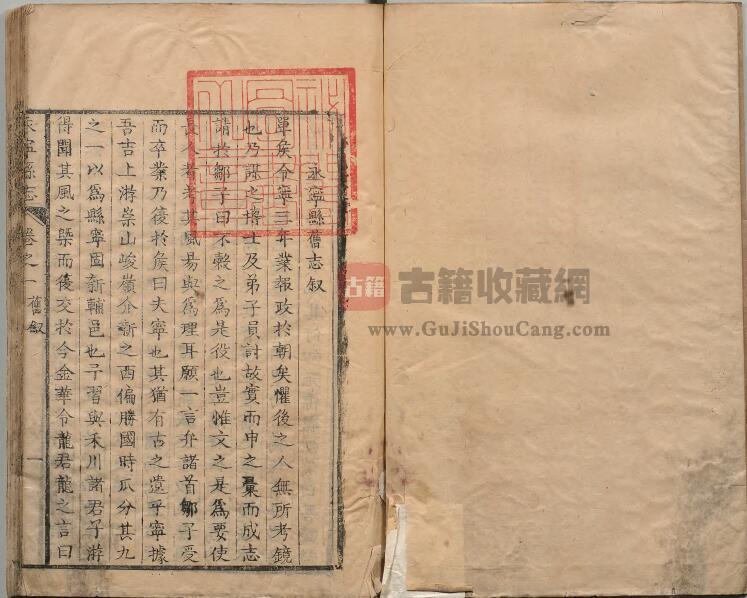 永寧縣舊志叙
單矦令寧三年業報政於朝矣懼後之人無所考鏡
也乃謀之博士及弟子員討故實而申之稾而成志
請於鄒子曰不榖之為是役也豈惟文之是爲要使
長人者考其風昜與爲理耳願一言弁諸首鄒子受
而卒業乃復於矦曰夫寧也其猶有古之遺乎寧據
吾吉上游崇山峻嶺介新之西偏勝國時瓜分其九
之一以爲縣寧固新輔邑也予習與禾川諸君子游
得聞其風之槩而後交於今金華令龍君龍之言曰
永寧縣志
卷之一
舊叙
一
古籍
古籍收藏網
www.GuJiShouCang.com